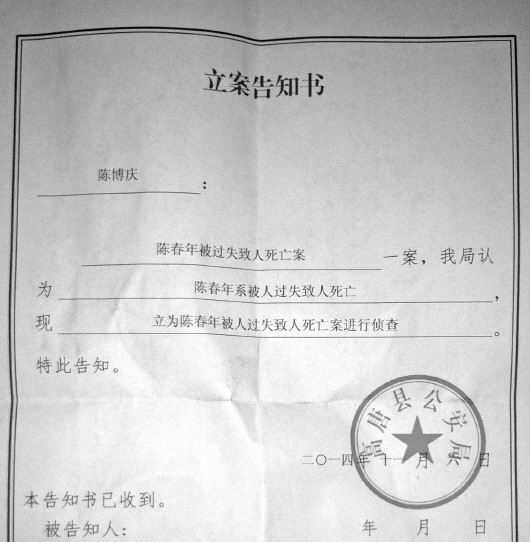 立案告知书
陈博庆：
陈春年被过失致人死亡案一案，我局认
为陈春年系被人过失致人死亡，
现立为陈春年被人过失致人死亡案进行侦查。
特此告知。
高唐县公安局
二〇一四年十一月六日
本告知书已收到。
被告知人：
年月日